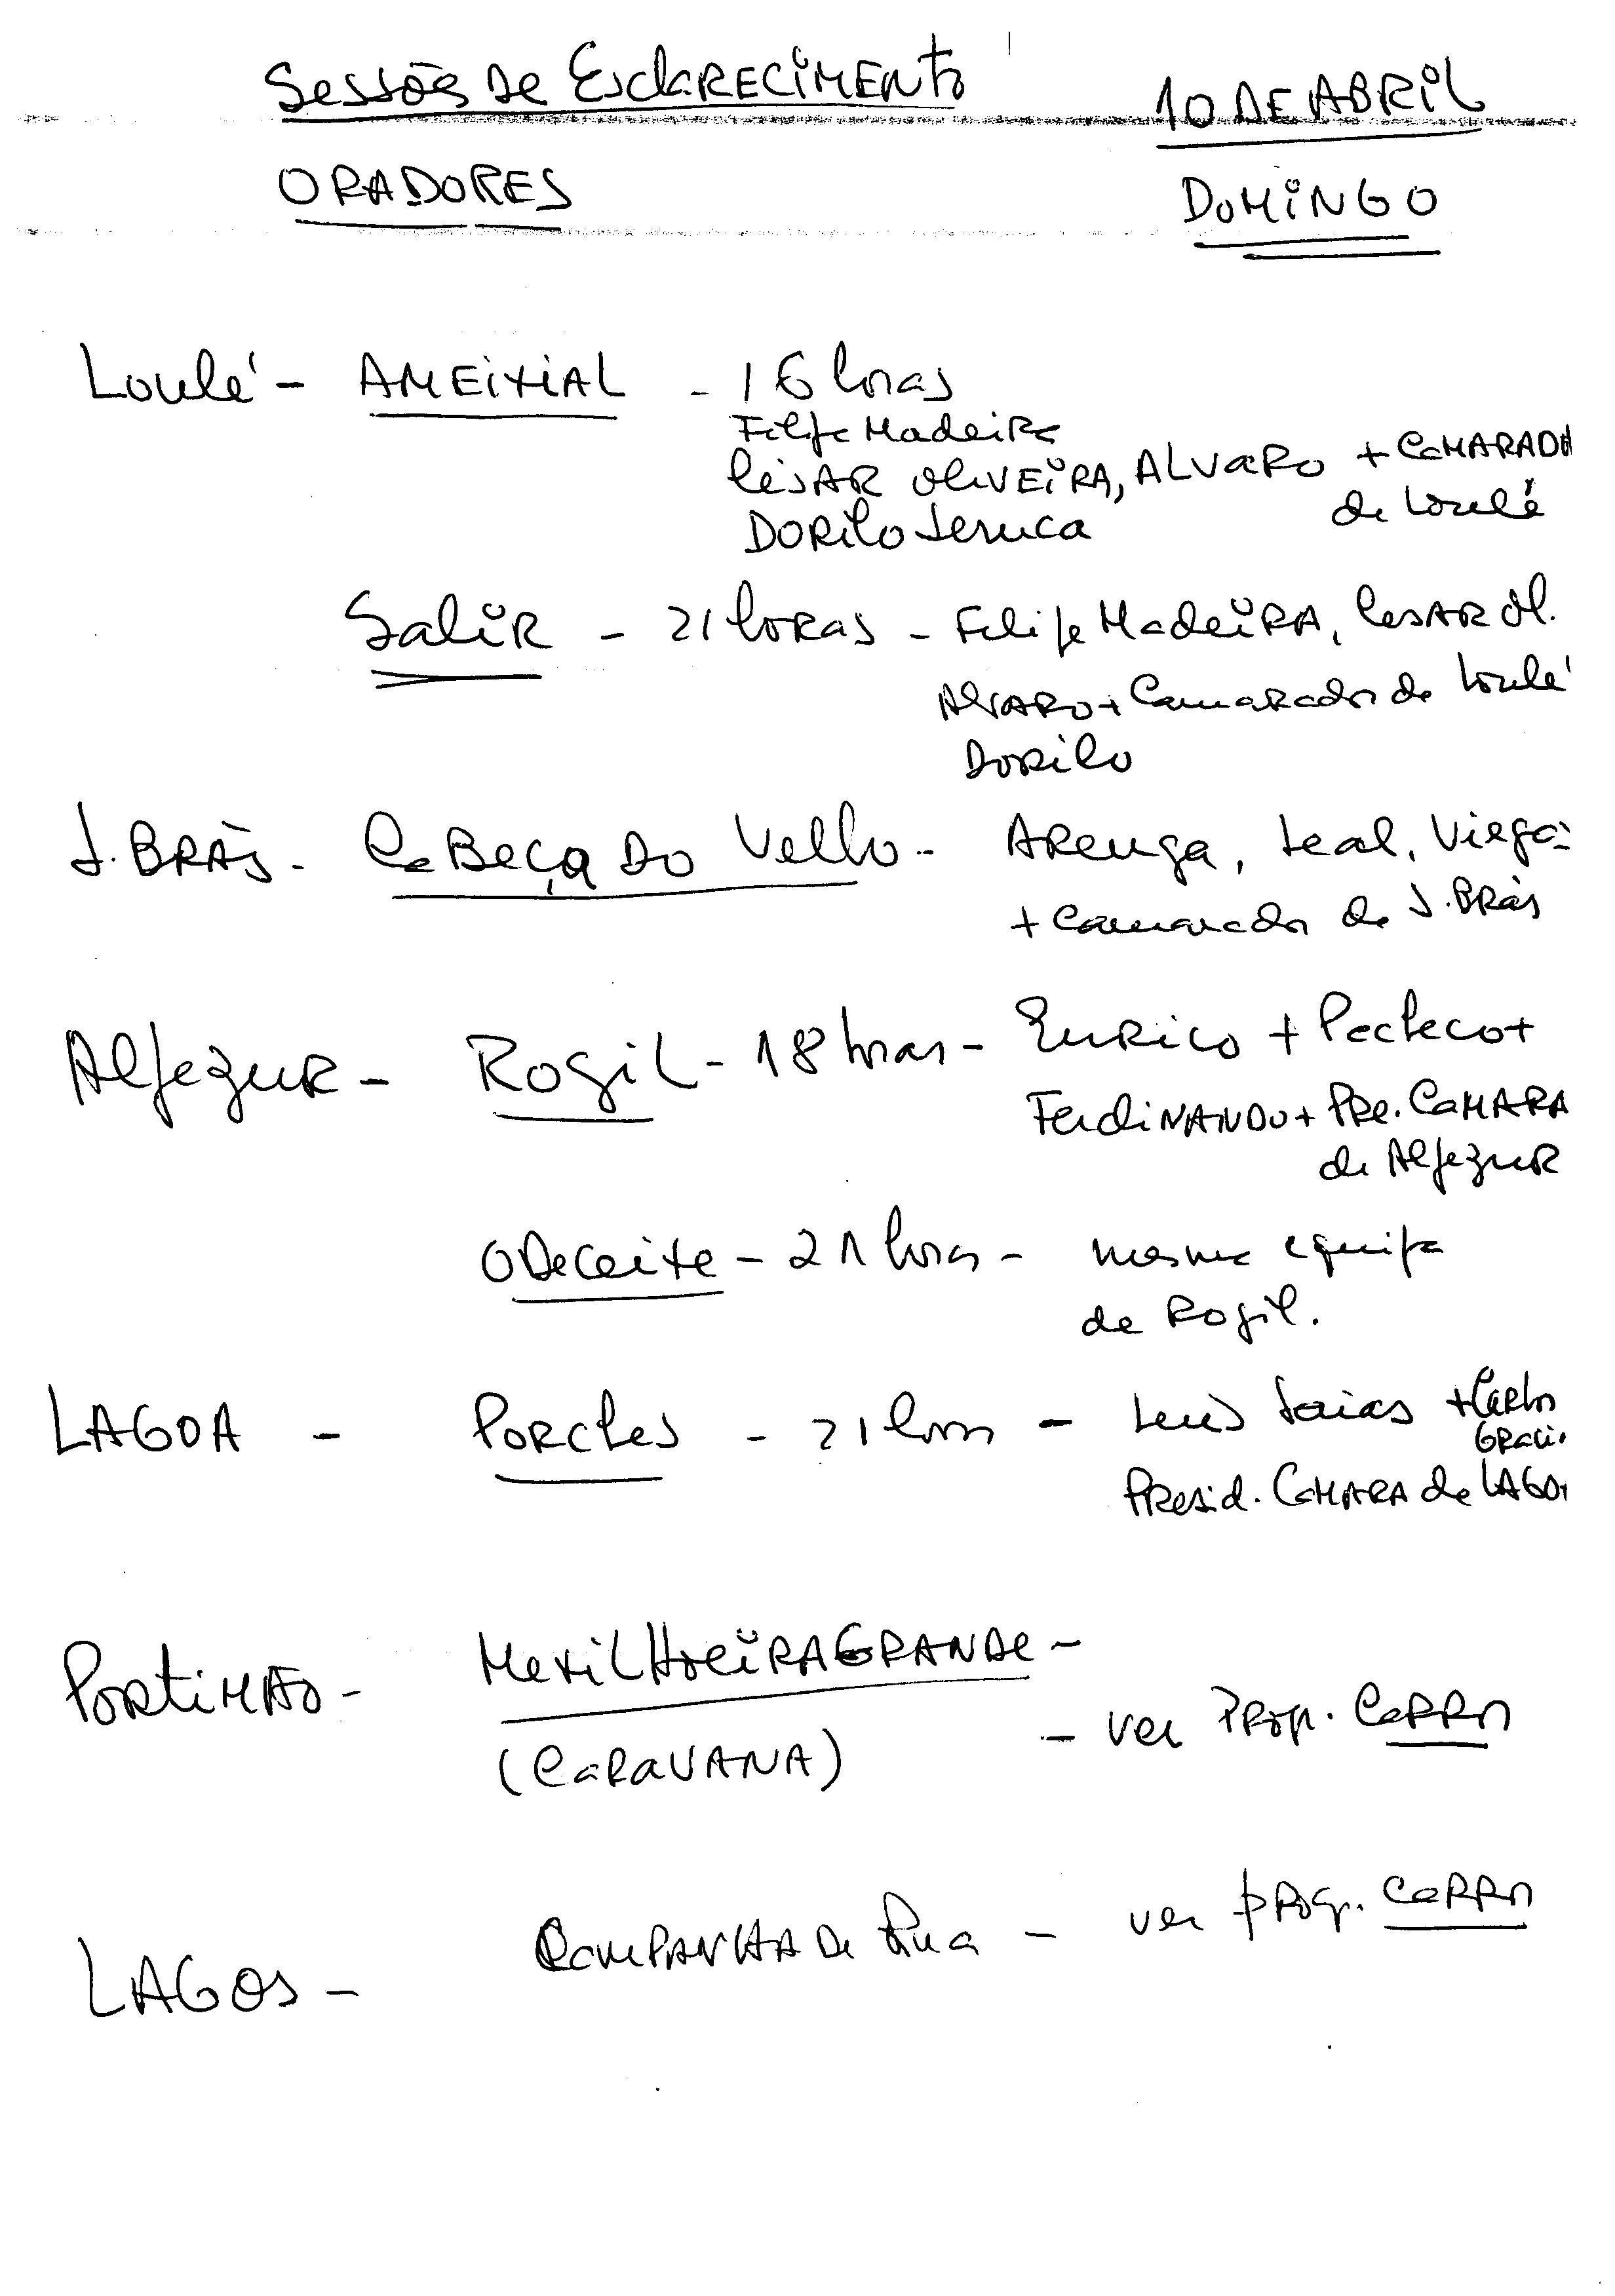 Sessões de Esclarecimento
10 DE ABRIL
ORADORES
DOMINGO
Loulé - AMEIXIAL - 16 horas
Filipe Madeira
César Oliveira, ALVARO + CAMARADA
de Loulé
DORILO Seruca
Salir - 21 horas - Filipe Madeira, Cesar Ol.
Alvaro + Camarada de Loulé
Dorilo
S. BRÁS - Cabeça do Velho - Arenga, Leal, Viegas
+ Camarada de S. Brás
Aljezur - Rogil - 18 horas - Eurico + Pacheco +
Ferdinando + Pre. CAMARA
de Aljezur
Odeceite - 21 horas - mesma equipa
de Rogil.
LAGOA - Porches - 21 horas - Luís Saias + Carlos
Presid. CAMARA de LAGOA
Portimão - MexilhoeiraGrande -
(CARAVANA) - ver Prop. Carro
LAGOS - Companha de Rua - ver prog. Carro